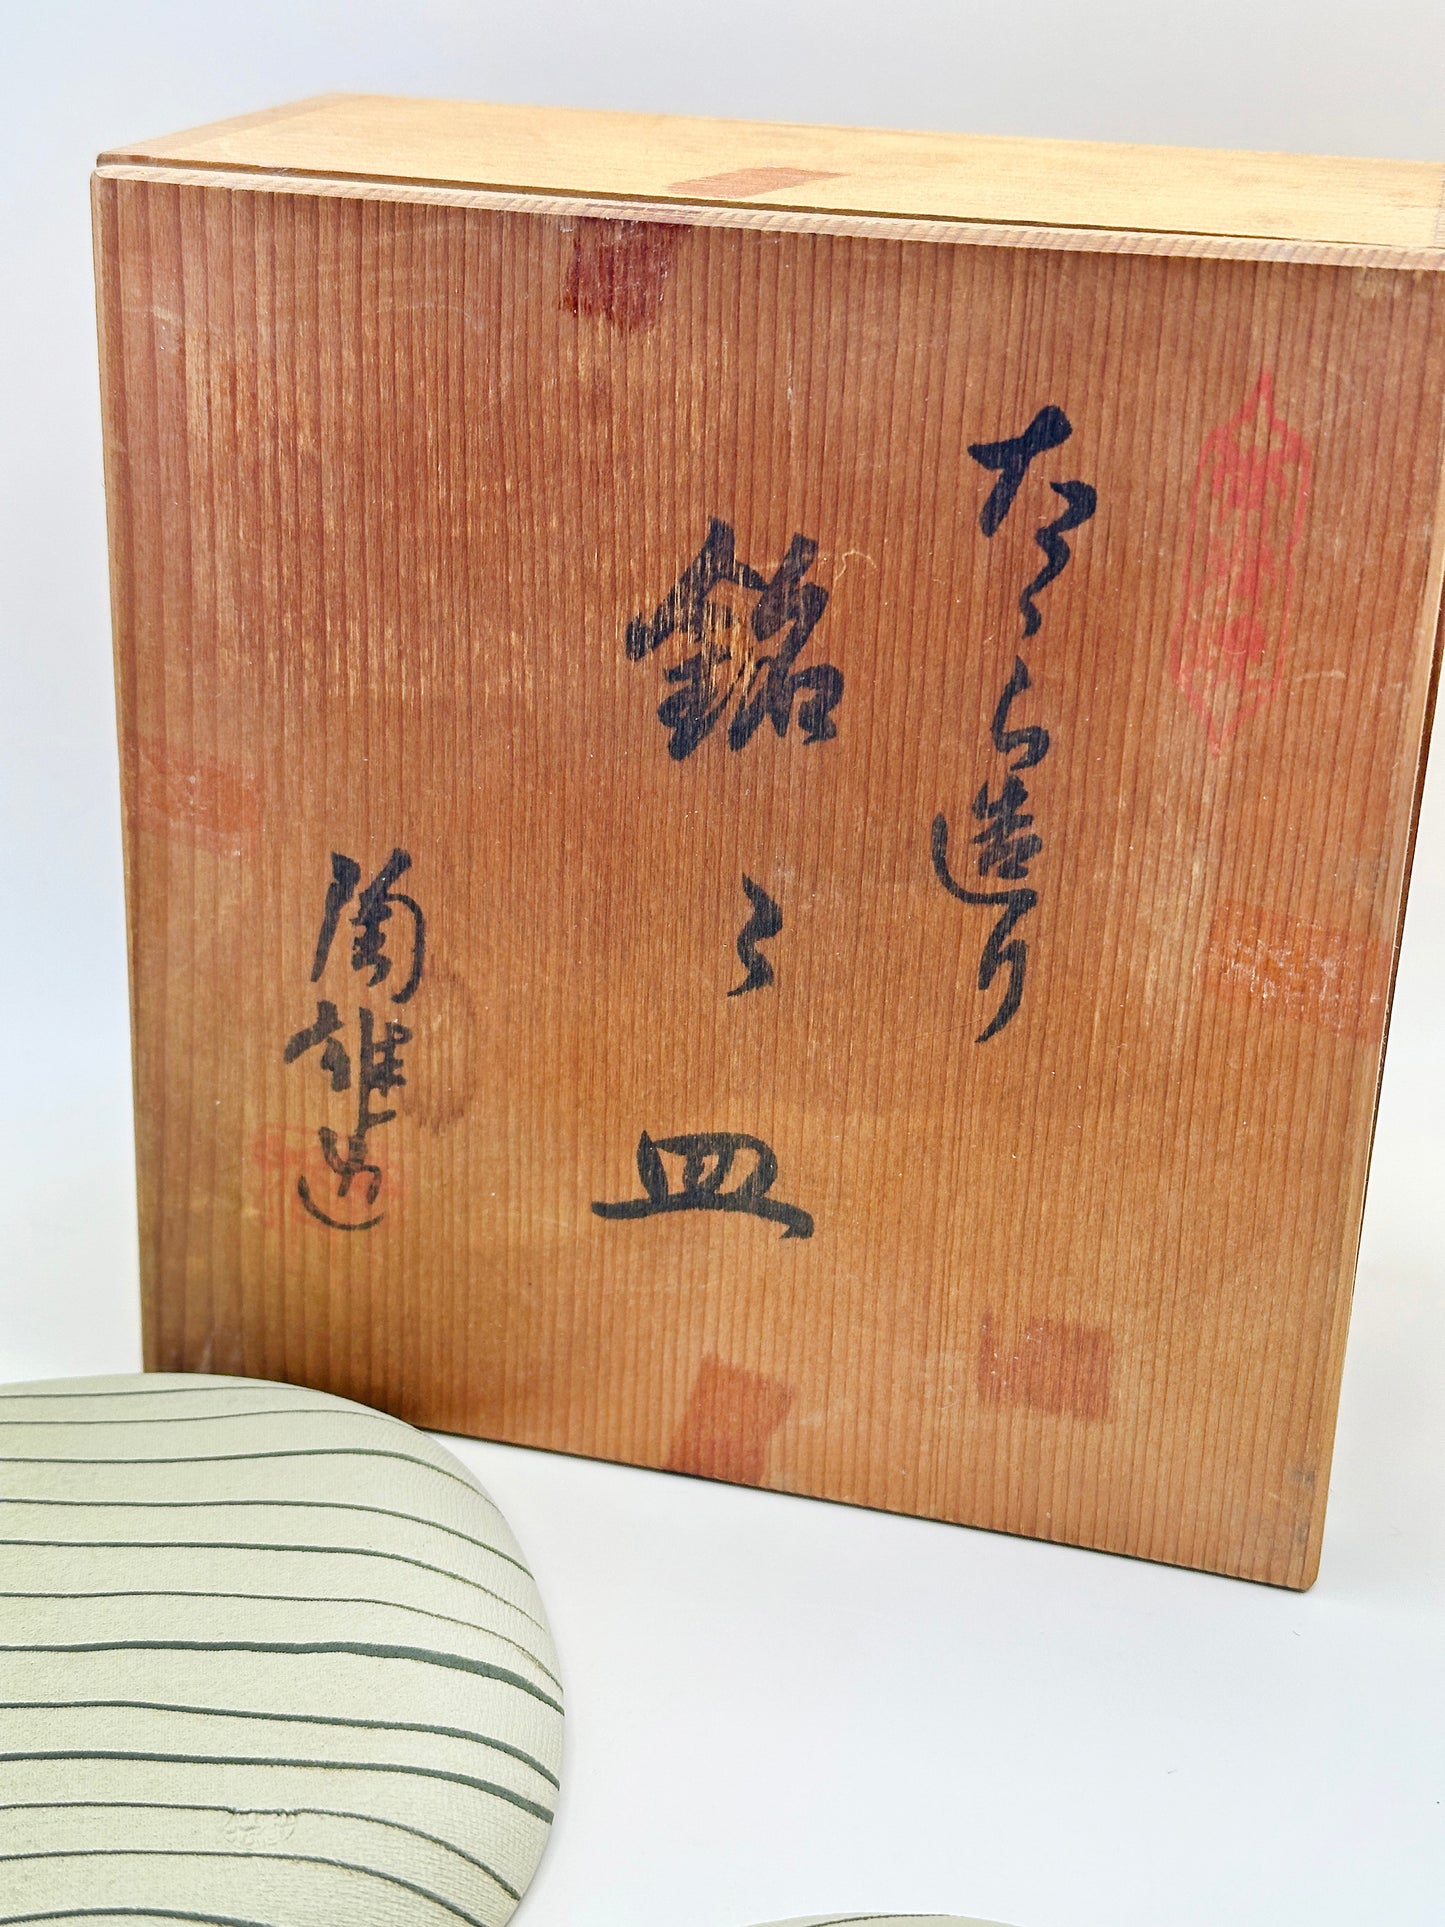 たゝら造り
銘〻皿
陶雄造